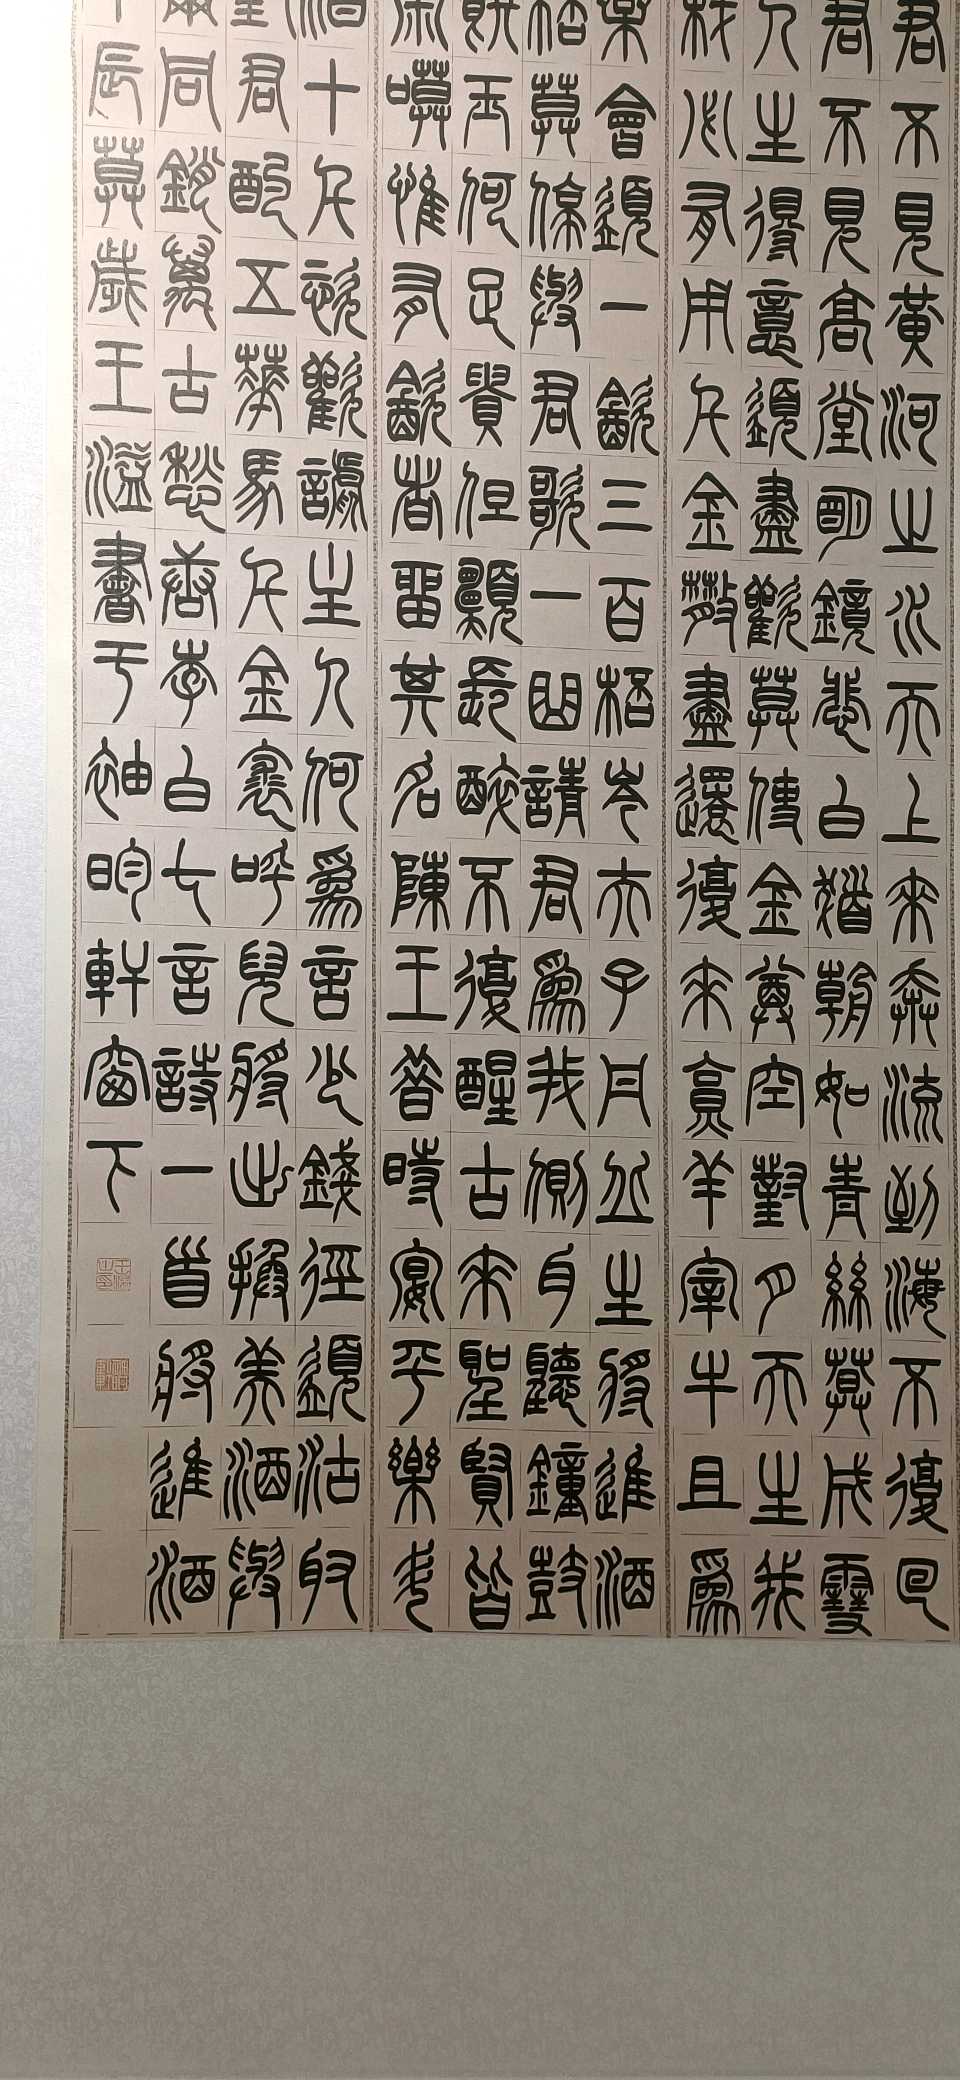 君不見黃河之水天上來奔流到海不復回
君不見高堂明鏡悲白髮朝如青絲莫成雪
人生得意須盡歡莫使金尊空對月天生我
材必有用千金散盡還復來亯羊宰牛且爲
樂會須一飲三百桮岑夫子丹丘生將進酒
桮莫停與君歌一曲請君爲我側耳聽鐘鼓
饌玉何足貴但願長醉不復醒古來聖賢皆
寂寞惟有飲者留其名陳王昔時宴平樂斗
酒十千恣歡謔主人何爲言少錢徑須沽取
君酌五華馬千金裘呼兒將出換美酒與
爾同銷萬古愁唐李白七言詩一首將進酒
辰莫歲王溢書于岫昀軒窗下